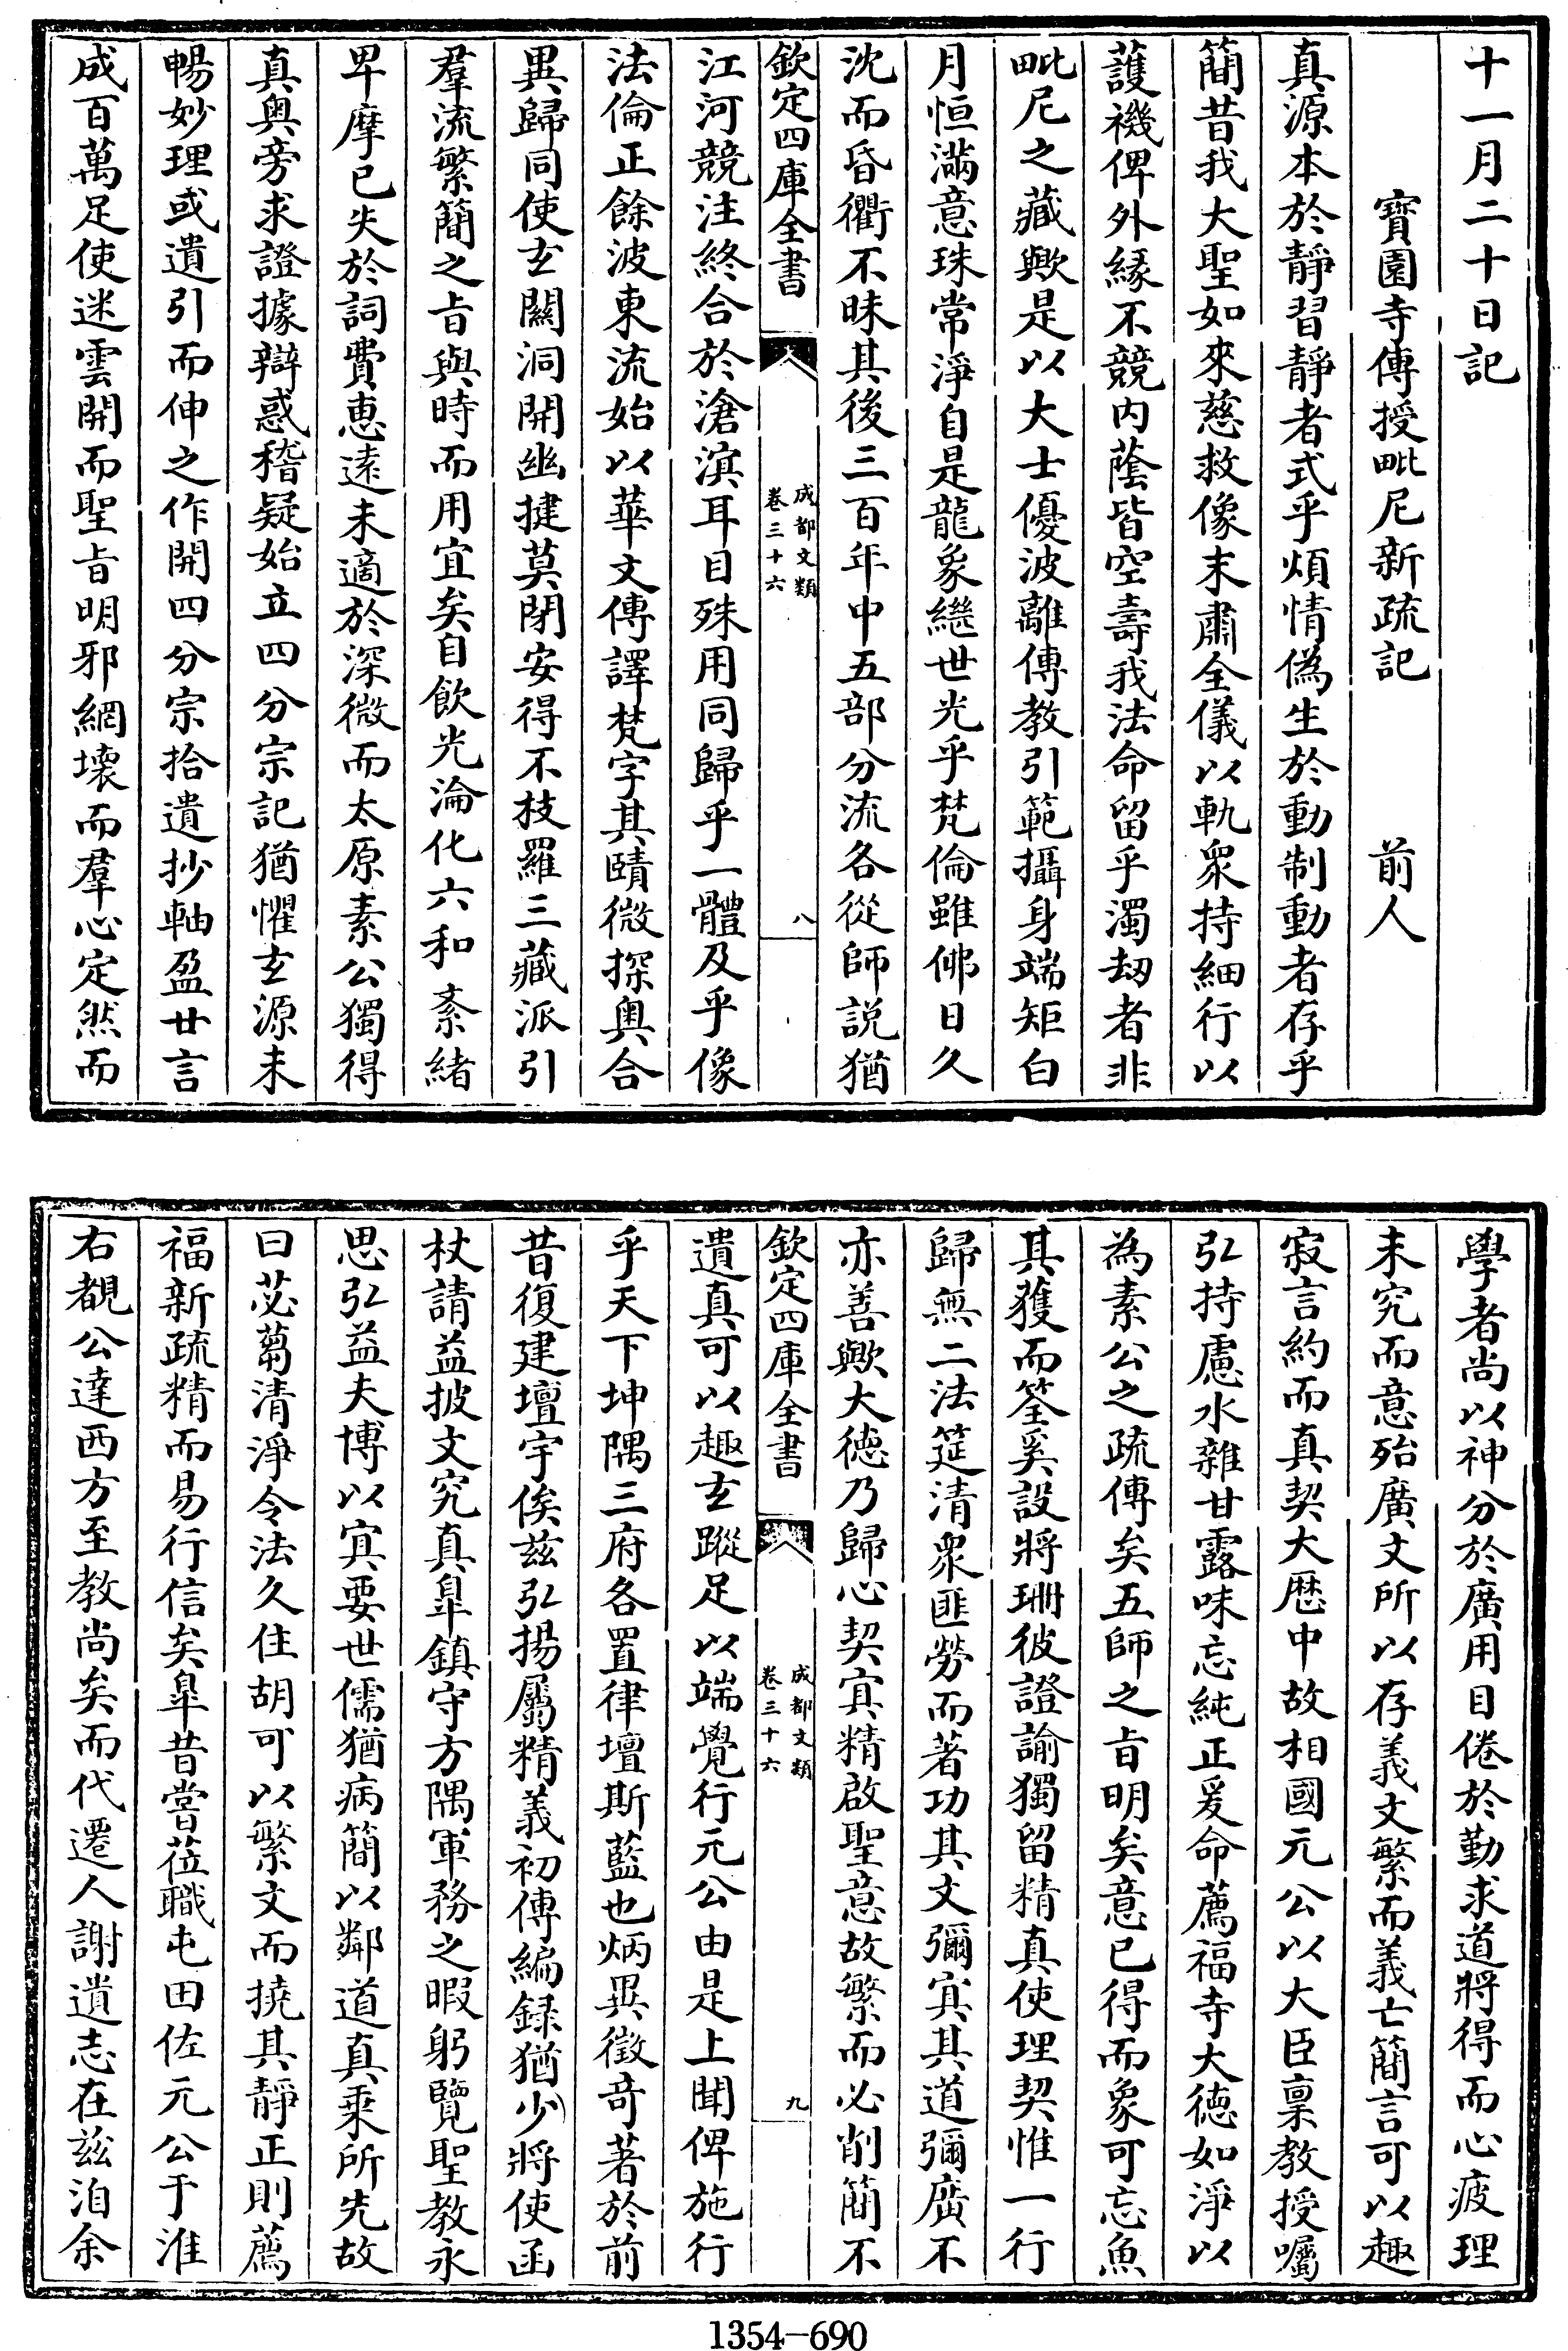 十一月二十日記
寶園寺傳授毗尼新疏記　前人
真源本於靜習靜者式乎煩情偽生於動制動者存乎
簡昔我大聖如來慈救像末肅全儀以軌衆持細行以
護禨俾外緣不競内䕃皆空壽我法命留乎濁刼者非
毗尼之藏歟是以大士優波離傳教引範攝身端矩白
月恒滿意珠常淨自是龍象繼世光乎梵倫雖佛日久
沈而昏衢不昧其後三百年中五部分流各從師説猶
欽定四庫全書
成都文類
卷三十六
八
江河競注終合於滄溟耳目殊用同歸乎一體及乎像
法倫正餘波東流始以華文傳譯梵字其賾微探奥合
異歸同使玄關洞開幽揵莫閉安得不枝羅三藏派引
羣流繁簡之㫖與時而用宜矣自飲光淪化六和紊緒
卑摩已失於詞費惠遠未適於深微而太原素公獨得
真奥旁求證據辯惑稽疑始立四分宗記猶懼玄源未
暢妙理或遺引而伸之作開四分宗拾遺抄軸盈廿言
成百萬足使迷雲開而聖㫖明邪網壞而羣心定然而
學者尚以神分於廣用目倦於勤求道將得而心疲理
未究而意殆廣文所以存義文繁而義亡簡言可以趣
寂言約而真契大厯中故相國元公以大臣稟教授囑
弘持慮水雜甘露味忘純正爰命薦福寺大徳如淨以
為素公之疏傳矣五師之㫖明矣意已得而象可忘魚
其獲而筌奚設將珊彼證諭獨留精真使理契惟一行
歸無二法筵清衆匪勞而著功其文彌㝠其道彌廣不
亦善歟大徳乃歸心契㝠精啟聖意故繁而必削簡不
欽定四庫全書
成都文類
卷三十六
九
遺真可以趣玄蹤足以端覺行元公由是上聞俾施行
乎天下坤隅三府各置律壇斯藍也炳異徵奇著於前
昔復建壇宇俟兹弘揚屬精義初傳編録猶少將使函
杖請益披文究真臯鎮守方隅軍務之暇躬覽聖教永
思弘益夫博以㝠要世儒猶病簡以鄰道真乗所先故
曰苾蒭清淨令法久住胡可以繁文而撓其靜正則薦
福新疏精而易行信矣臯昔嘗莅職屯田佐元公于淮
右覩公達西方至教尚矣而代遷人謝遺志在兹洎余
1354-690